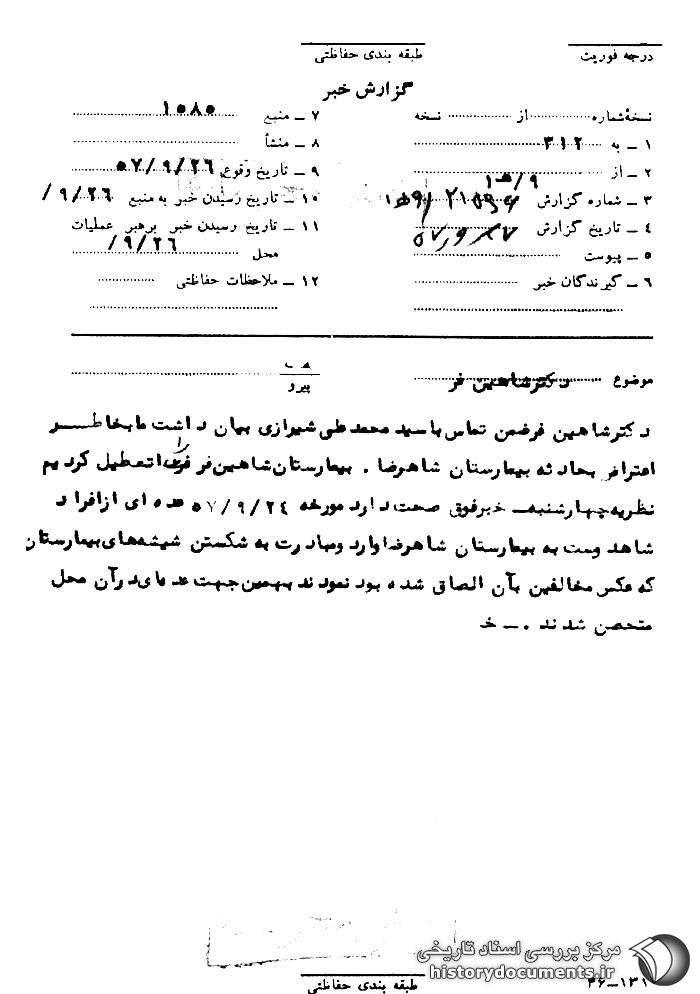 درجه فوریت
طبقه بندی حفاظتی
گزارش خبر
نسخه‌شماره از نسخه
۱ ــ به ۳۱۲
۲ ــ از ۹/هـ۱
۳ ــ شماره گزارش
۴ ــ تاریخ گزارش
۵ ــ پیوست
۶ ــ گیرندگان خبر
۷ ــ منبع ۱۰۸۵
۸ ــ منشأ
۹ ــ تاریخ وقوع ۵۷/۹/۲۶
۱۰ ــ تاریخ رسیدن خبر به منبع ۹/۲۶/
۱۱ ــ تاریخ رسیدن خبر برهبر عملیات
محل ۹/۲۶/
۱۲ ــ ملاحظات حفاظتی
موضوع دکترشاهین فر
پیرو
دکترشاهین فرضمن تماس باسید محمدعلی شیرازی بیان داشت ما بخاطر
اعتراض بحادثه بیمارستان شاهرضا . بیمارستان شاهین فر را تعطیل کردیم
نظریه چهارشنبه ــ خبرفوق صحت دارد مورخه ۵۷/۹/۲۴ عده ای ازافراد
شاهدوست به بیمارستان شاهرضا وارد ومبادرت به شکستن شیشه‌های بیمارستان
که عکس مخالفین بآن الصاق شده بود نمودند بهمین جهت عده‌ای در آن محل
متحصن شدند . ــ خ
مرکز بررسی اسناد تاریخی
historydocuments.ir
طبقه بندی حفاظتی
۳۶ــ۱۳۱